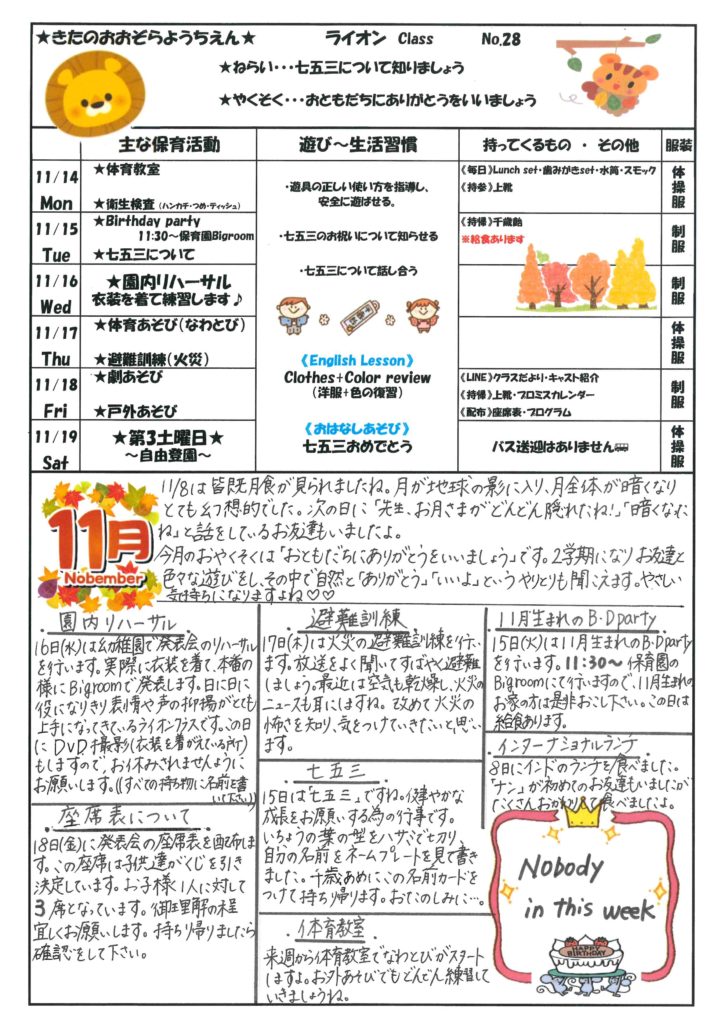 ★きたのおおぞらようちえん★ ライオン Class No.28
★ねらい・・・七五三について知りましょう
★やくそく・・・おともだちにありがとうをいいましょう
主な保育活動 遊び～生活習慣 持ってくるもの ・ その他 服装
11/14 Mon
★体育教室
★衛生検査(ハンカチ・つめ・ティッシュ)
《毎日》Lunch set・歯みがきset・水筒・スモック
《持参》上靴
体操服
11/15 Tue
★Birthday party
11:30～保育園Bigroom
★七五三について
《持帰》千歳飴
※給食あります
制服
11/16 Wed
★園内リハーサル
衣装を着て練習します♪
制服
11/17 Thu
★体育あそび(なわとび)
★避難訓練(火災)
体操服
11/18 Fri
★劇あそび
★戸外あそび
《LINE》クラスだより・キャスト紹介
《持帰》上靴・プロミスカレンダー
《配布》座席表・プログラム
制服
11/19 Sat
★第3土曜日★
～自由登園～
バス送迎はありません
体操服
・遊具の正しい使い方を指導し、
安全に遊ばせる。
・七五三のお祝いについて知らせる
・七五三について話し合う
《English Lesson》
Clothes+Color review
(洋服+色の復習)
《おはなしあそび》
七五三おめでとう
11月
Nobember
11/8は皆既月食が見られましたね。月が地球の影に入り、月全体が暗くなり
とても幻想的でした。次の日に「先生、お月さまがどんどん隠れたね!」「暗くなった
ね」と話をしているお友達もいましたよ。
今月のおやくそくは「おともだちにありがとうをいいましょう」です。2学期になりお友達と
色々な遊びをし、その中で自然と「ありがとう」「いいよ」というやりとりも聞こえます。やさしい
気持ちになりますよね♡♡
園内リハーサル
16日(水)は幼稚園で発表会のリハーサル
を行います。実際に衣装を着て、本番の
様にBigroomで発表します。日に日に
役になりきり表情や声の抑揚がとても
上手になってきているライオンクラスです。この日
にDVD撮影(衣装を着がえている所)
もしますので、お休みされませんように
お願いします。((すべての持ち物に名前を書
いて下さい))
座席表について
18日(金)に発表会の座席表を配布しま
す。この座席は子供達がくじを引き
決定しています。お子様1人に対して
3席となっています。御理解の程
宜しくお願いします。持ち帰りましたら
確認をして下さい。
避難訓練
17日(木)は火災の避難訓練を行い
ます。放送をよく聞いてすばやく避難
しましょう。最近は空気も乾燥し、火災の
ニュースも耳にしますね。改めて火災の
怖さを知り、気をつけていきたいと思い
ます。
七五三
15日は「七五三」ですね。健やかな
成長をお願いする為の行事です。
いちょうの葉の型をハサミで切り、
自分の名前をネームプレートを見て書き
ました。千歳あめにこの名前カードを
つけて持ち帰ります。おたのしみに…。
体育教室
来週から体育教室でなわとびがスタート
しますよ。お外あそびでもどんどん練習して
いきましょうね。
11月生まれのB・Dparty
15日(火)は11月生まれのB・Dparty
を行います。11:30～保育園の
Bigroomにて行いますので、11月生まれの
お家の方は是非おこし下さい。この日は
給食あります。
インターナショナルランチ
8日にインドのランチを食べました。
「ナン」が初めてのお友達もいましたが
たくさんおかわりして食べましたよ。
Nobody
in this week
HAPPY
BIRTHDAY